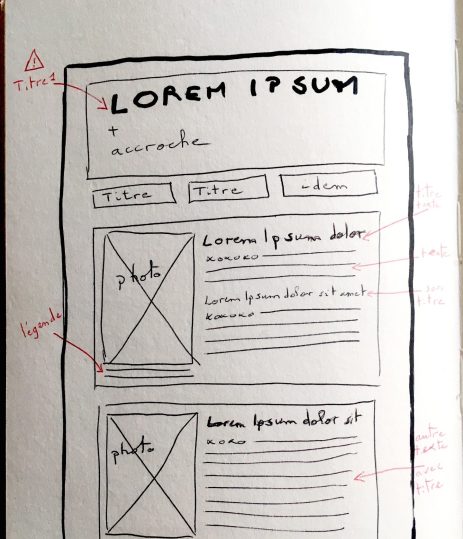 !
Titre 1
LOREM IPSUM
+
accroche
Titre
Titre
idem
Lorem Ipsum dolor
titre
texte
xoxoxo
photo
texte
Lorem Ipsum dolor sit amet
sous
titre
xoxoxo
légende
Lorem Ipsum dolor sit
xoxo
photo
autre
texte
avec
titre